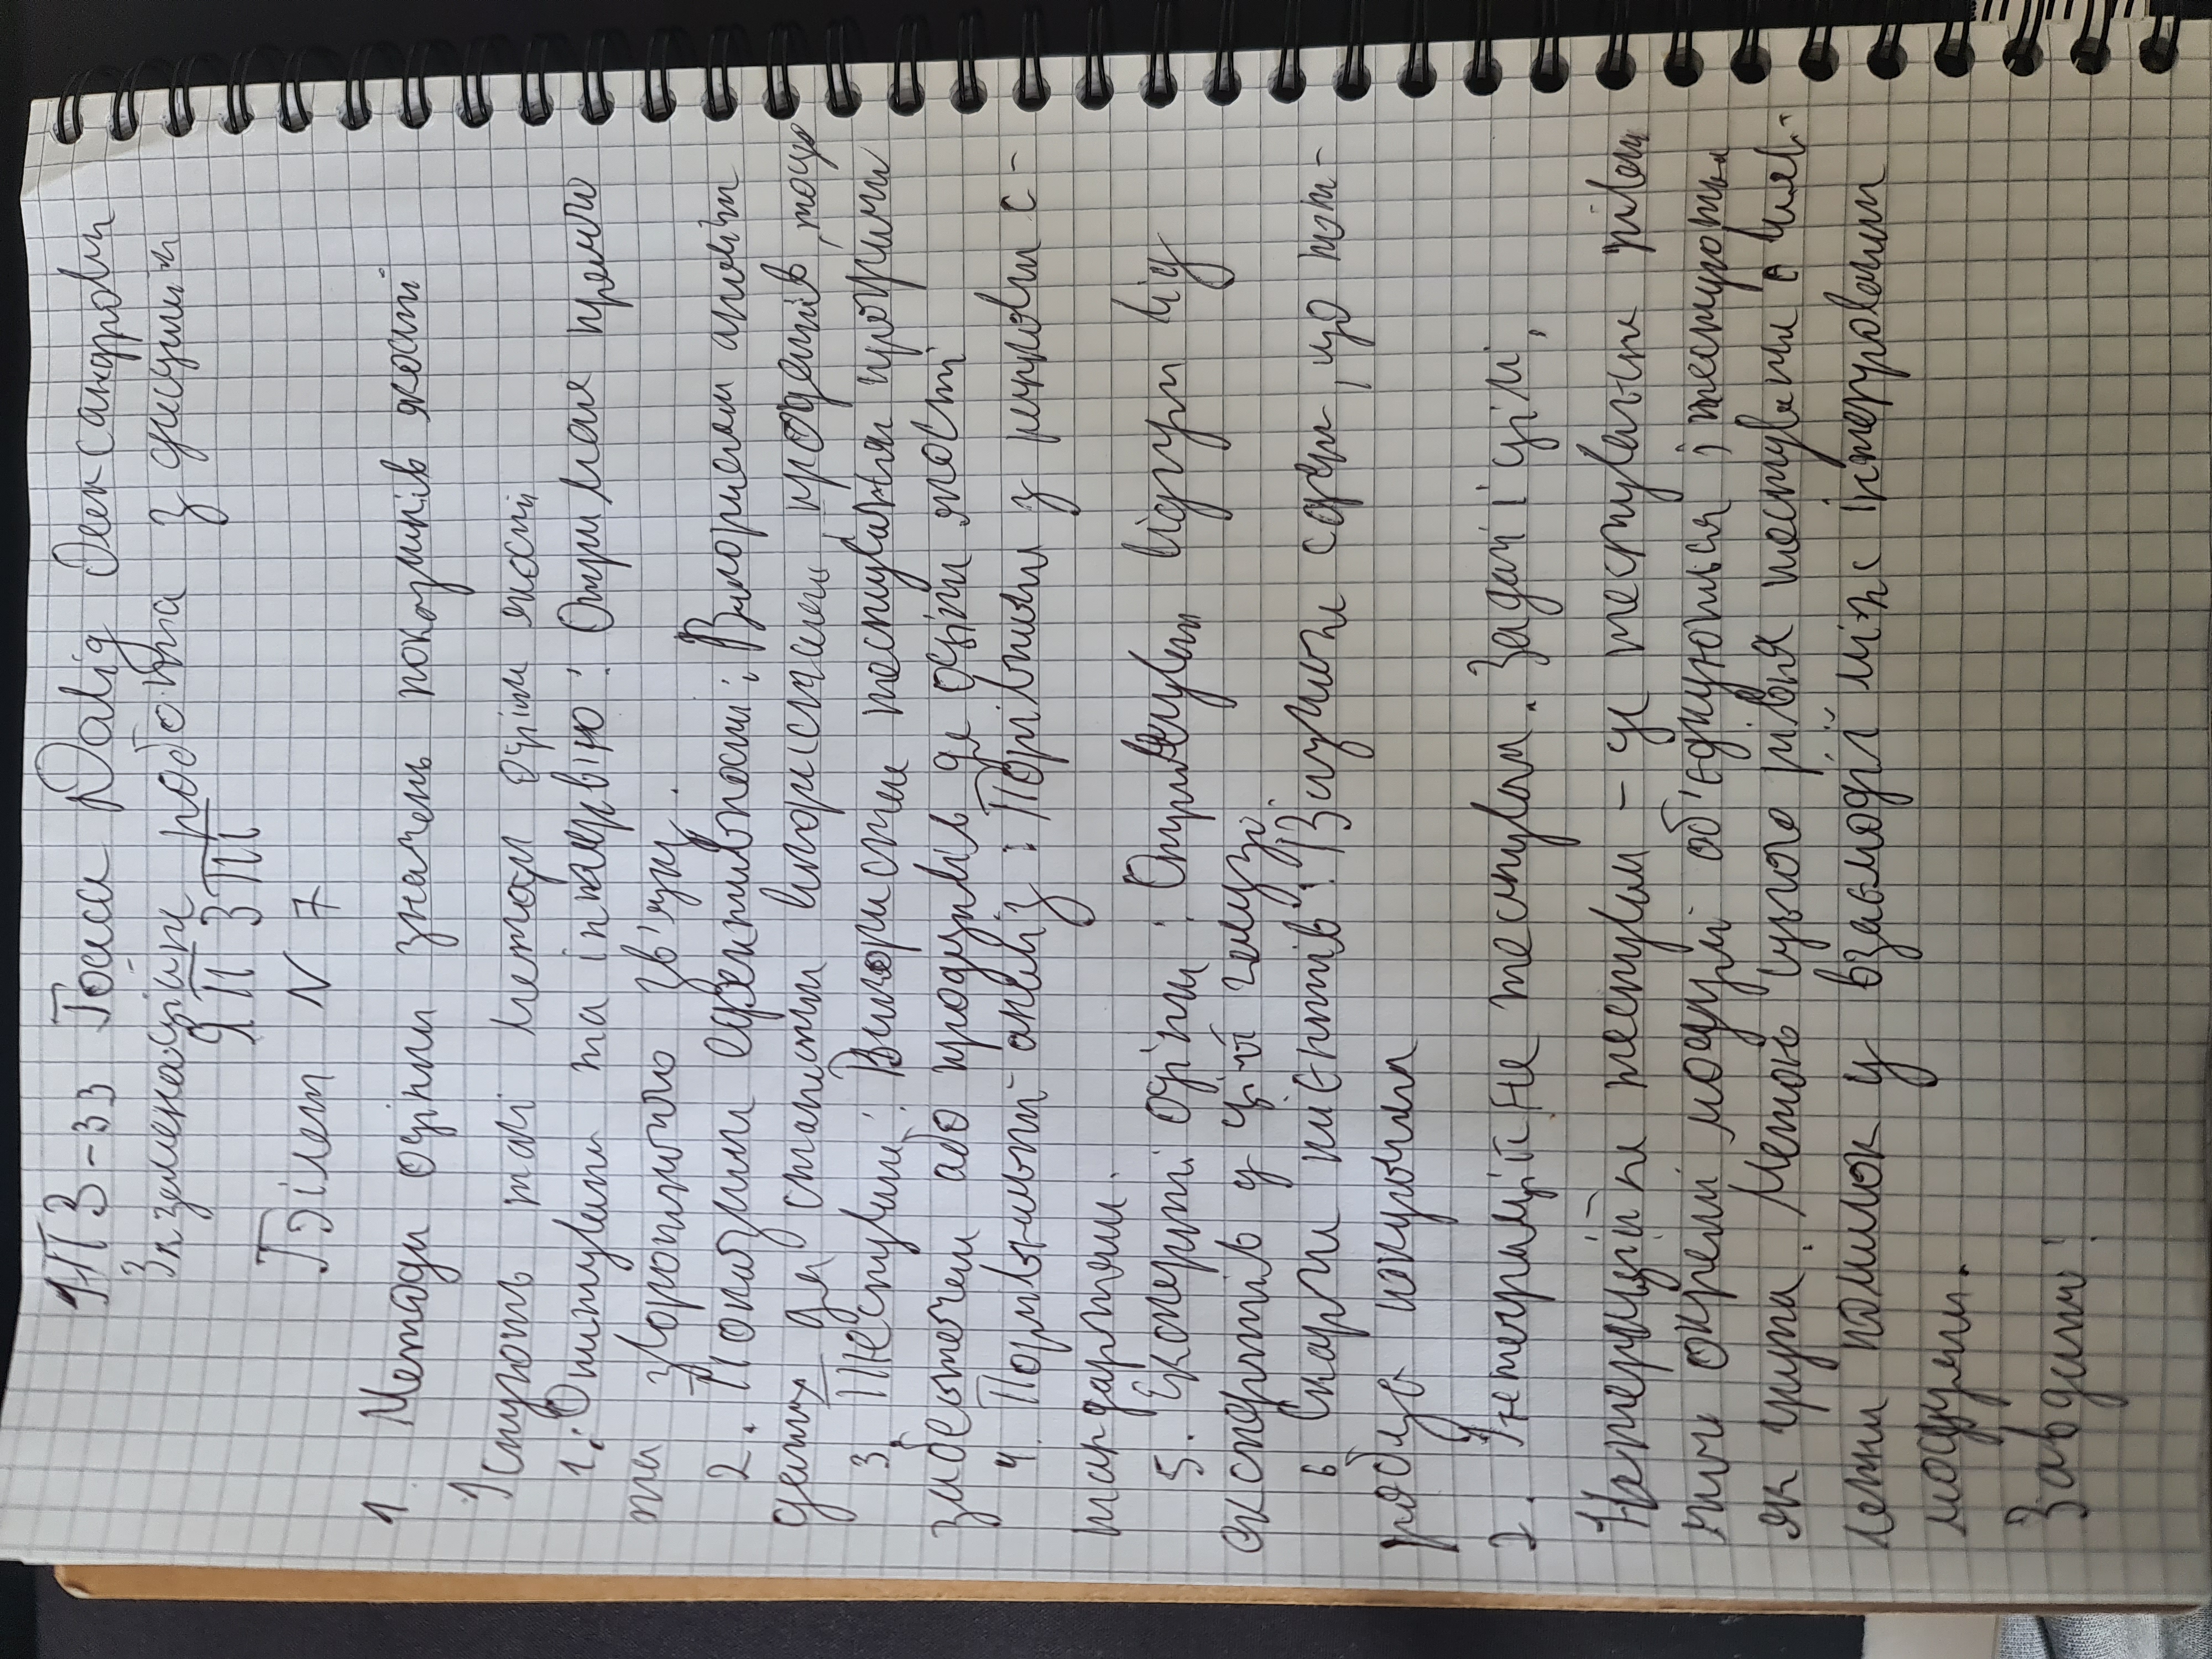 ІПЗ-33 Давід Олександрович
Екзаменаційна робота з дисципліни
ЯПЗТП
Білет N 7
1. Методи оцінки значень показників якості
Існують такі методи оцінки якості
1. Опитування та інтерв'ю: Отримання прямого
та зворотнього зв'язку.
2. Показники ефективності: Використання аналізу
даних для статистики використання, продажів, тощо
3. Тестування: Використання тестування програмного
забезпечення або продуктів для оцінки якості
4. Порівняльний аналіз: Порівняння з ринковими с-
тандартами.
5. Експертні оцінки: Отримування відгуків від
експертів у цій галузі.
6 Скарги клієнтів: що пот-
ребує покращення
2. Інтеграційне тестування. Задачі і цілі.
Інтеграційне тестування - це тестування рівень
окремі модулі об'єднуються і тестуються
як група. Метою цього рівня тестування є вияв-
лення помилок у взаємодії між інтегрованими
модулями.
Завдання: